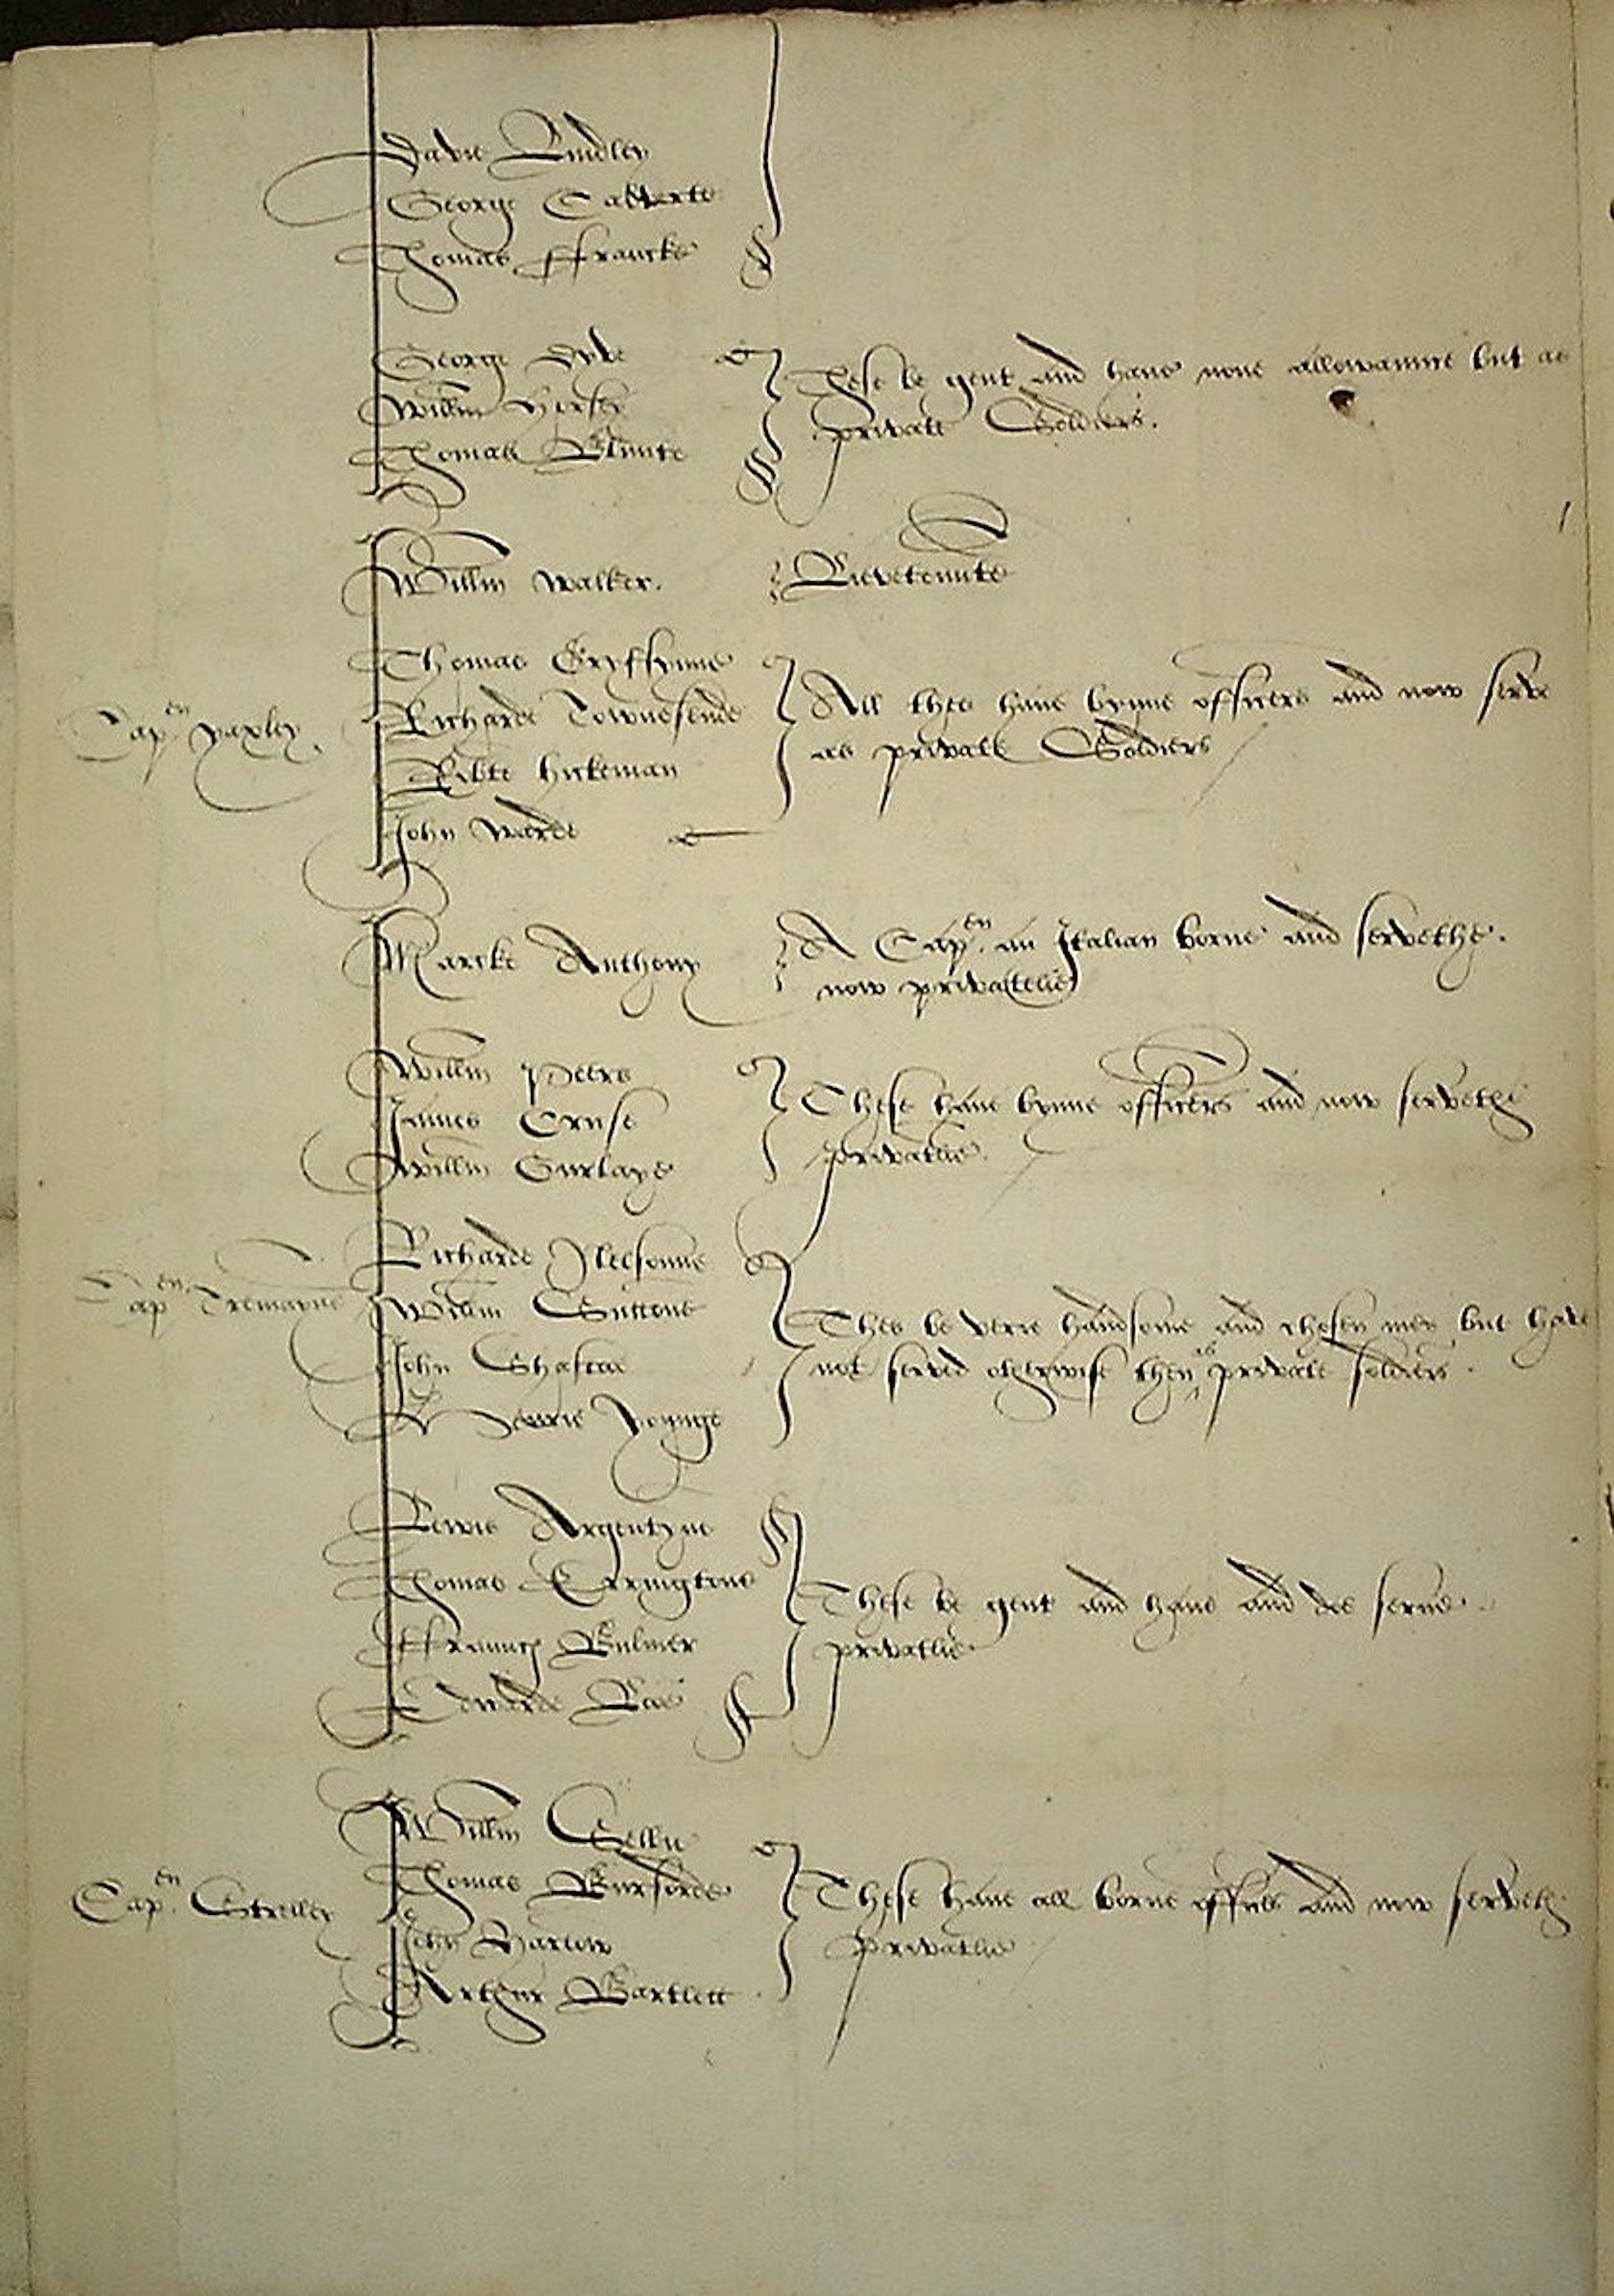 Davie Lindley
George Calverte
Thomas ffrancke
George Dyke
Willm
Thomas Blunte
These be gent and have none allowaunce but as
private Soldiers.
Willm Walker.
Lievetennte
Capen Yaxley.
Thomas Gryffynne
Richarde Townesende
Robte Hickeman
John Warde
All thes have bynne officers and now serve
as private Soldiers
Marcke Anthony
A Capen. an Italian borne and servethe.
now privatelie
Willm Peers
James Cruse
Willm
These have bynne officers and now servethe
privatlie.
Capen Tremayne
Richarde Nelsonne
Willm Suttone
John Shaftoe
Henrie Younge
Thes be verie handsome and chosen men but have
not served otherwise then as private soldiers.
Lewis Argentyne
Thomas Erringtone
ffrauncis Bulmer
Edwarde Lee
These be gent and have and doe serve.
privatlie
Capen. Strelley
Willm Sellie
Thomas Burforde
John Harlow
Arthur Bartlett
These have all borne offices and now serveth
privatlie